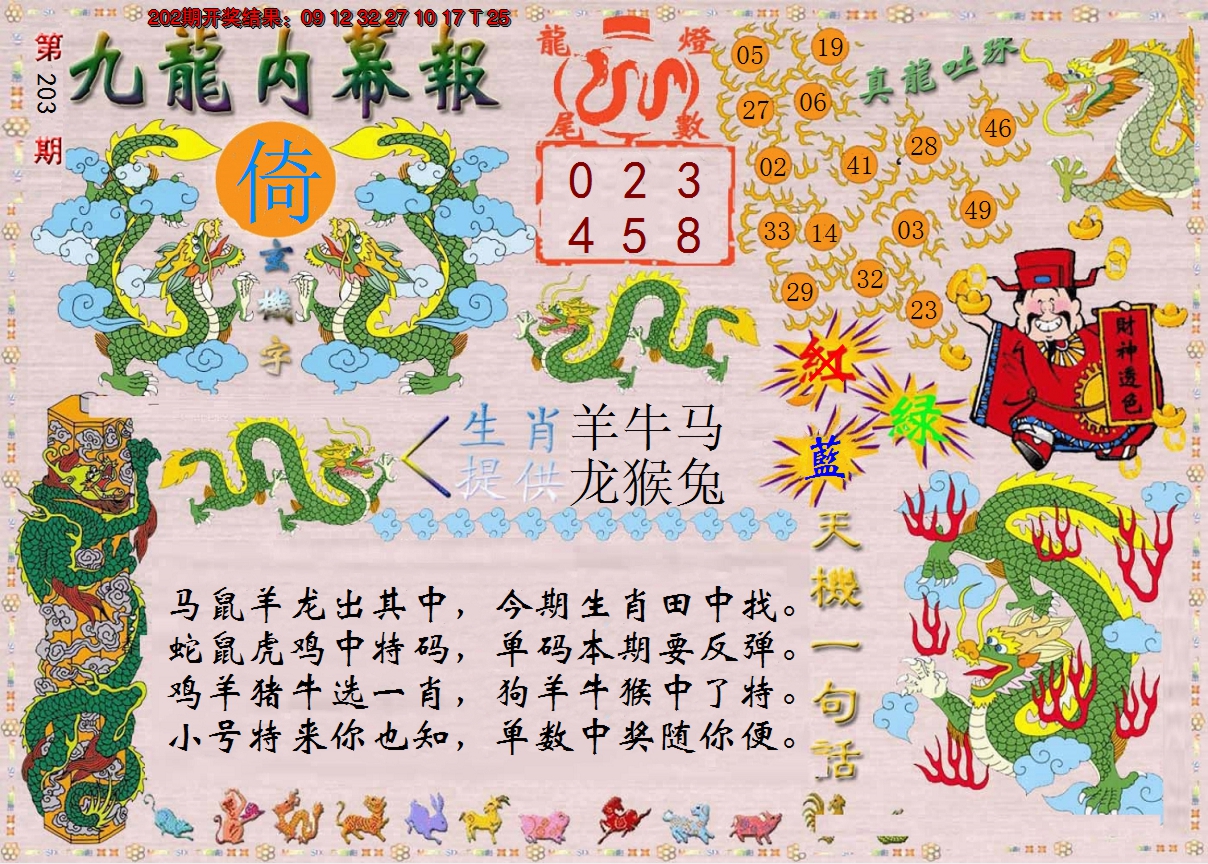 202期开奖结果：09 12 32 27 10 17 T 25
第203期
九龍內幕報
倚
玄機字
龍燈
尾數
0 2 3
4 5 8
真龍吐珠
05
19
27
06
28
46
02
41
49
33
14
03
32
29
23
財神透色
紅
綠
藍
生肖
提供
羊牛马
龙猴兔
天機一句話
马鼠羊龙出其中，今期生肖田中找。
蛇鼠虎鸡中特码，单码本期要反弹。
鸡羊猪牛选一肖，狗羊牛猴中了特。
小号特来你也知，单数中奖随你便。